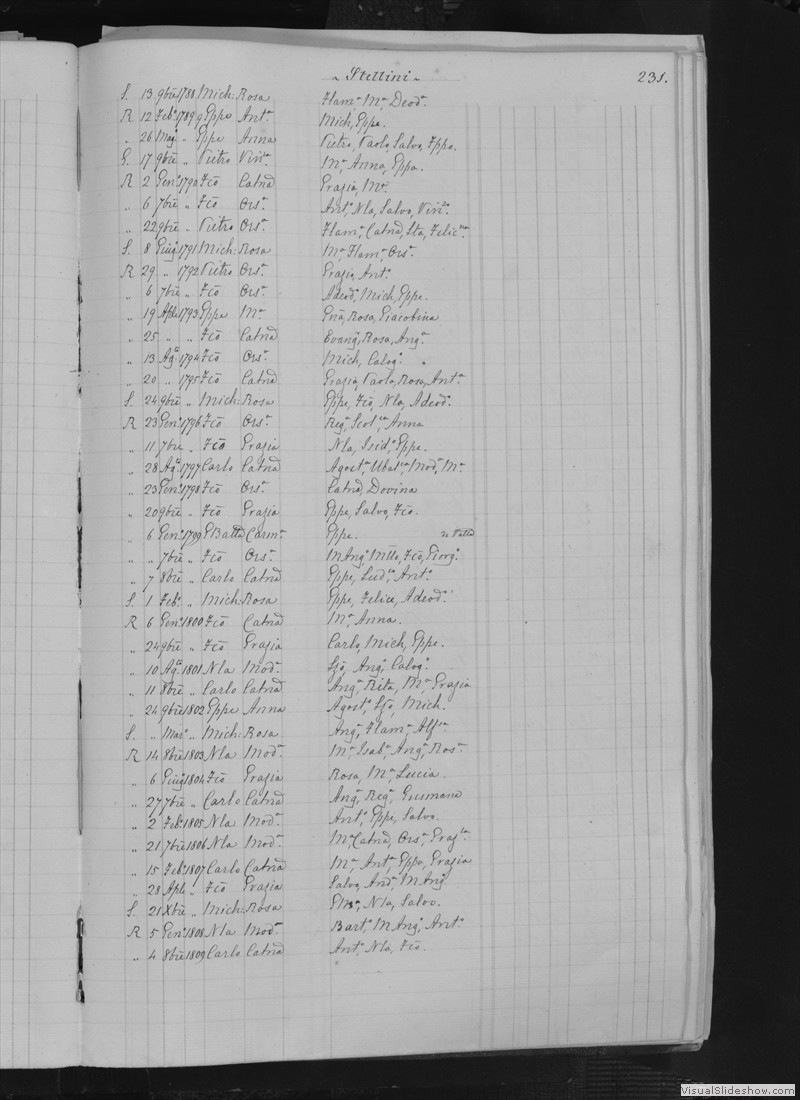 ~ Stellini ~ 231.
S. 13 9bre 1788 Mich: Rosa Flam.a M.a Deod.a
R 12 Feb.o 1789 Eppe Ant.a Mich, Eppe.
„ 26 Mag.o „ Eppe Anna Pietro, Paolo, Salvo, Eppa.
G. 17 9bre „ Pietro Vin.a M.a Anna, Eppa.
R 2 Gen.o 1790 Fco Catnd Grazia, M.a
„ 6 7bre „ Fco Ors.a Ant.o Nla, Salvo, Vin.zo
„ 22 9bre „ Pietro Ors.a Flam.a Catnd, Sta, Felic.na
S. 8 Giug.o 1791 Mich: Rosa M.a Flam.a Ors.a
R 29 „ 1792 Pietro Ors.a Grazia, Ant.a
„ 6 7bre „ Fco Ors.a Adeod.o Mich, Eppe.
„ 19 Aple 1793 Eppe M.a Gna, Rosa, Giacobina
„ 25 „ „ Fco Catnd Evang.a, Rosa, Ang.a
„ 13 Ag.o 1794 Fco Ors.a Mich, Calog.o
„ 20 „ 1795 Fco Catnd Grazia, Paola, Rosa, Ant.a
S. 24 9bre „ Mich: Rosa Eppe, Fco, Nla, Adeod.o
R 23 Gen.o 1796 Fco Ors.a Reg.a Scol.ca Anna
„ 11 7bre „ Fco Grazia Nla, Isid.o Eppe.
„ 28 Ag.o 1797 Carlo Catnd Agost.a Ubal.ca Mod.a M.a
„ 23 Gen.o 1798 Fco Ors.a Catnd, Dovina
„ 20 9bre „ Fco Grazia Eppe, Salvo, Fco.
„ 6 Gen.o 1799 GBatta Carm.a Eppe.
„ „ 7bre „ Fco Ors.a MAng.o Mllo, Fco, Giorg.o
„ 7 8bre „ Carlo Catnd Eppe, Lud.co Ant.o
S. 1 Feb.o „ Mich: Rosa Eppe, Felice, Adeod.o
R 6 Gen.o 1800 Fco Catnd M.a Anna.
„ 24 9bre „ Fco Grazia Carlo, Mich, Eppe.
„ 10 Ag.o 1801 Nla Mod.a Ljo, Ang.o Calog.o
„ 11 8bre „ Carlo Catnd Ang.a Rita, M.a Grazia
„ 24 9bre 1802 Eppe Anna Agost.o Ljo, Mich.
S. „ Mar.o „ Mich: Rosa Ang.a Flam.a Alf.na
R 14 8bre 1803 Nla Mod.a M.a Isab.a Ang.a Ros.a
„ 6 Giug.o 1804 Fco Grazia Rosa, M.a Lucia.
„ 27 7bre „ Carlo Catnd Ang.a Reg.a Gusmana
„ 2 Feb.o 1805 Nla Mod.a Ant.o Eppe, Salvo.
„ 21 7bre 1806 Nla Mod.a M.a Catnd, Ors.a Graz.la
„ 15 Feb.o 1807 Carlo Catnd M.a Ant.a Eppa, Grazia
„ 28 Aple „ Fco Grazia Salva, And.a MAng.a
S. 21 Xbre „ Mich: Rosa Nla, Salvo.
R 5 Gen.o 1808 Nla Mod.a Bart.o MAng.o Ant.o
„ 4 8bre 1809 Carlo Catnd Ant.o Nla, Fco.
VisualSlideshow.com